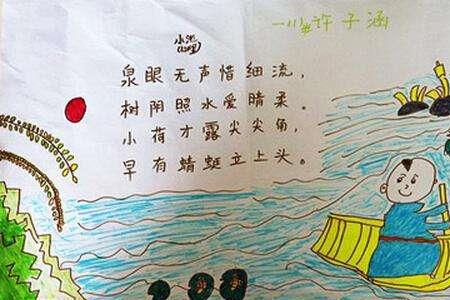 一11#许子涵
小池
泉眼无声惜细流，
树阴照水爱晴柔。
小荷才露尖尖角，
早有蜻蜓立上头。